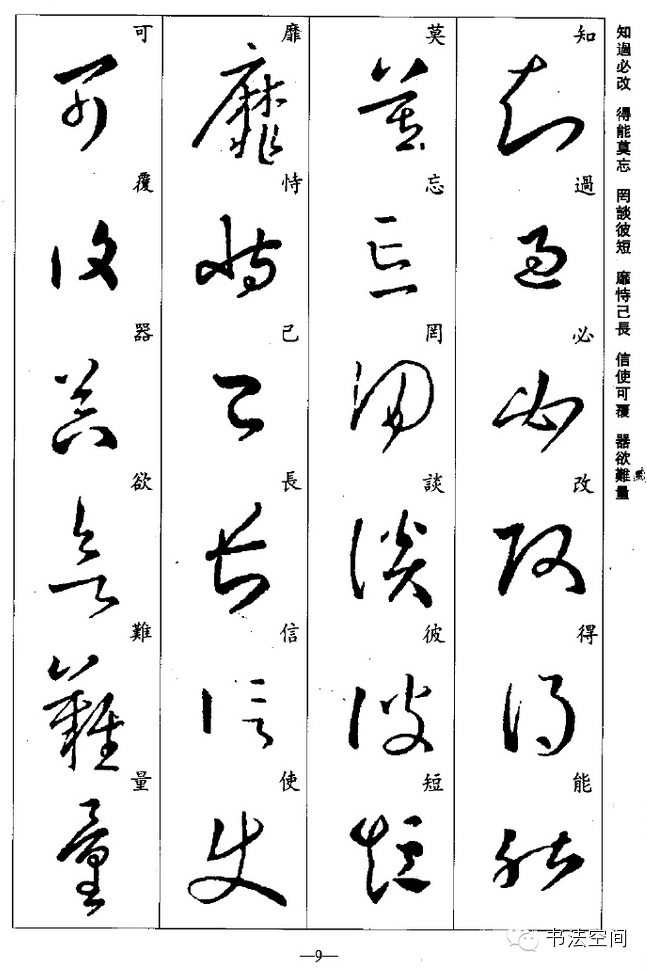 知過必改 得能莫忘 罔談彼短 靡恃己長 信使可覆 器欲難量
知過必改得能
莫忘罔談彼短
靡恃己長信使
可覆器欲難量
—9—
书法空间